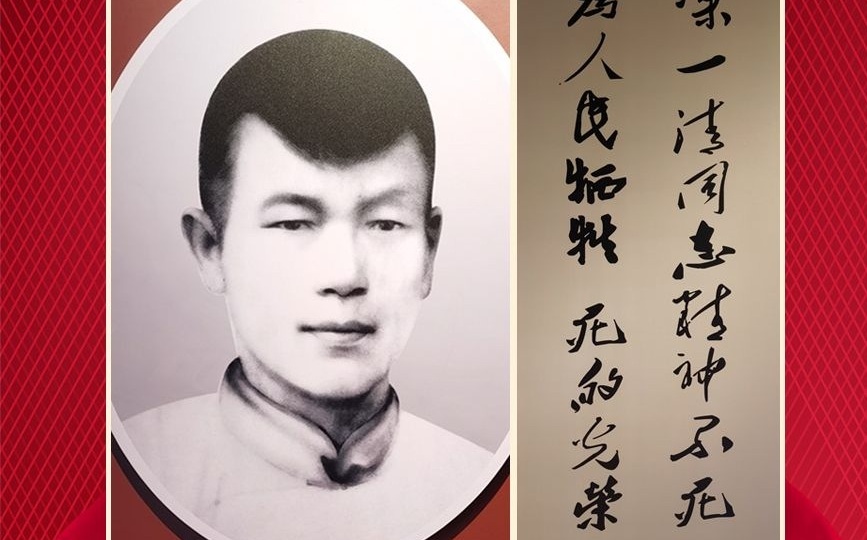 一清同志精神不死
為人民牺牲 死的光榮